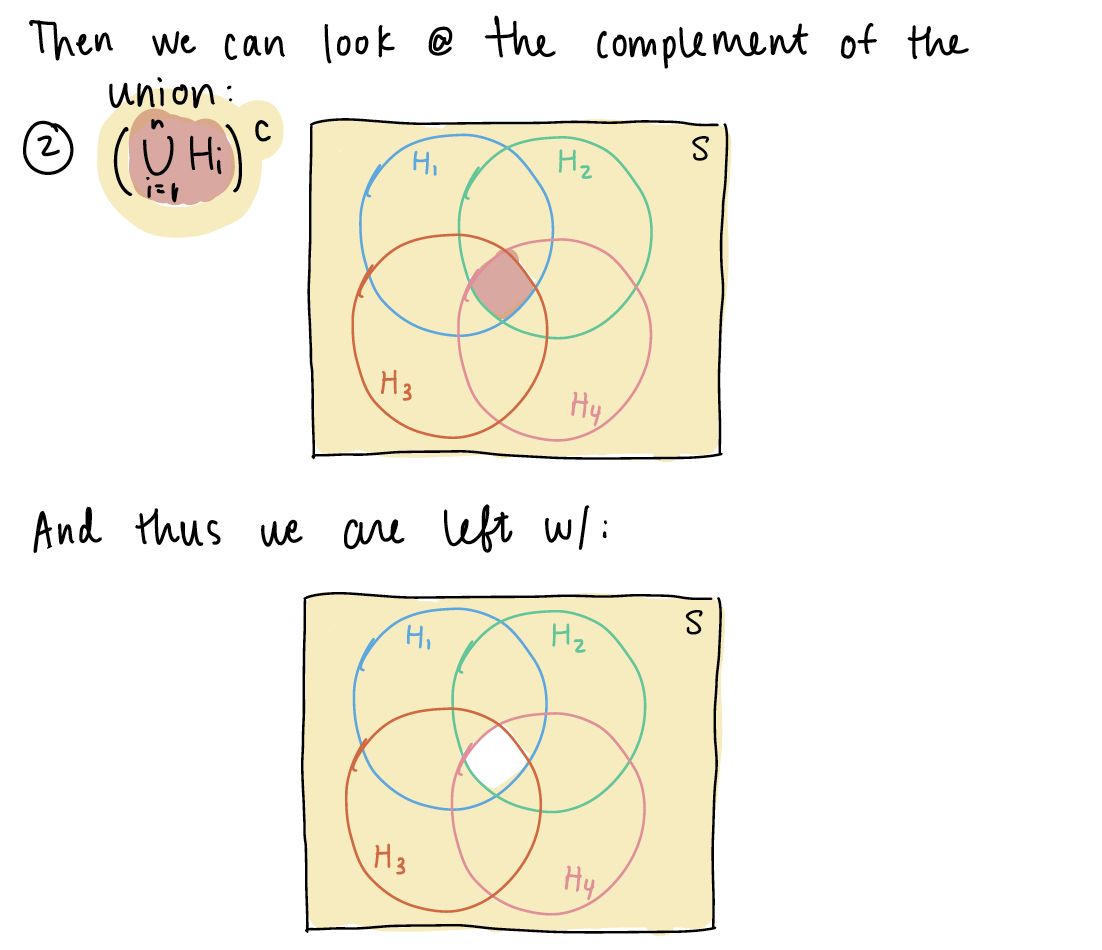 Then we can look @ the complement of the
union:
② (⋃ᵢ₌₁ⁿ Hᵢ)ᶜ
S
H₁ H₂
H₃ H₄
And thus we are left w/:
S
H₁ H₂
H₃ H₄